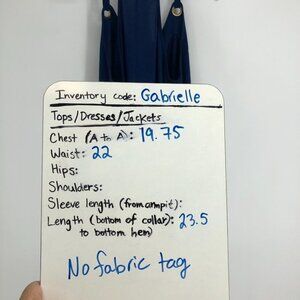 Inventory code: Gabrielle
Tops/Dresses/Jackets
Chest (A to A): 19.75
Waist: 22
Hips:
Shoulders:
Sleeve length (from armpit):
Length (bottom of collar): 23.5
to bottom hem)
No fabric tag